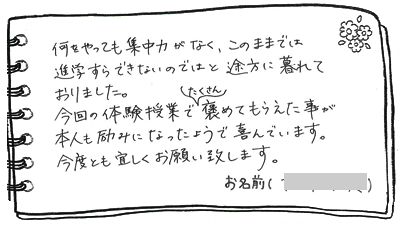 何をやっても集中力がなく、このままでは
進学すらできないのではと途方に暮れて
おりました。
たくさん
今回の体験授業で褒めてもらえた事が
本人も励みになったようで喜んでいます。
今度とも宜しくお願い致します。
お名前( )